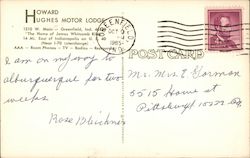 HOWARD
HUGHES MOTOR LODGE
1310 W. Main — Greenfield, Ind.
The Home of James Whitcomb Riley
14 Mi. East of Indianapolis on U.S.
(Near I-70 Interchange)
AAA — Room Phones — TV — Radios
GREENFIELD
OCT 9
1965
IND.
POST CARD
I am on my way to
albuquerque for two
weeks
Rose
Mr. Mrs. E Gorman
5515 Howe st
Pittsburgh